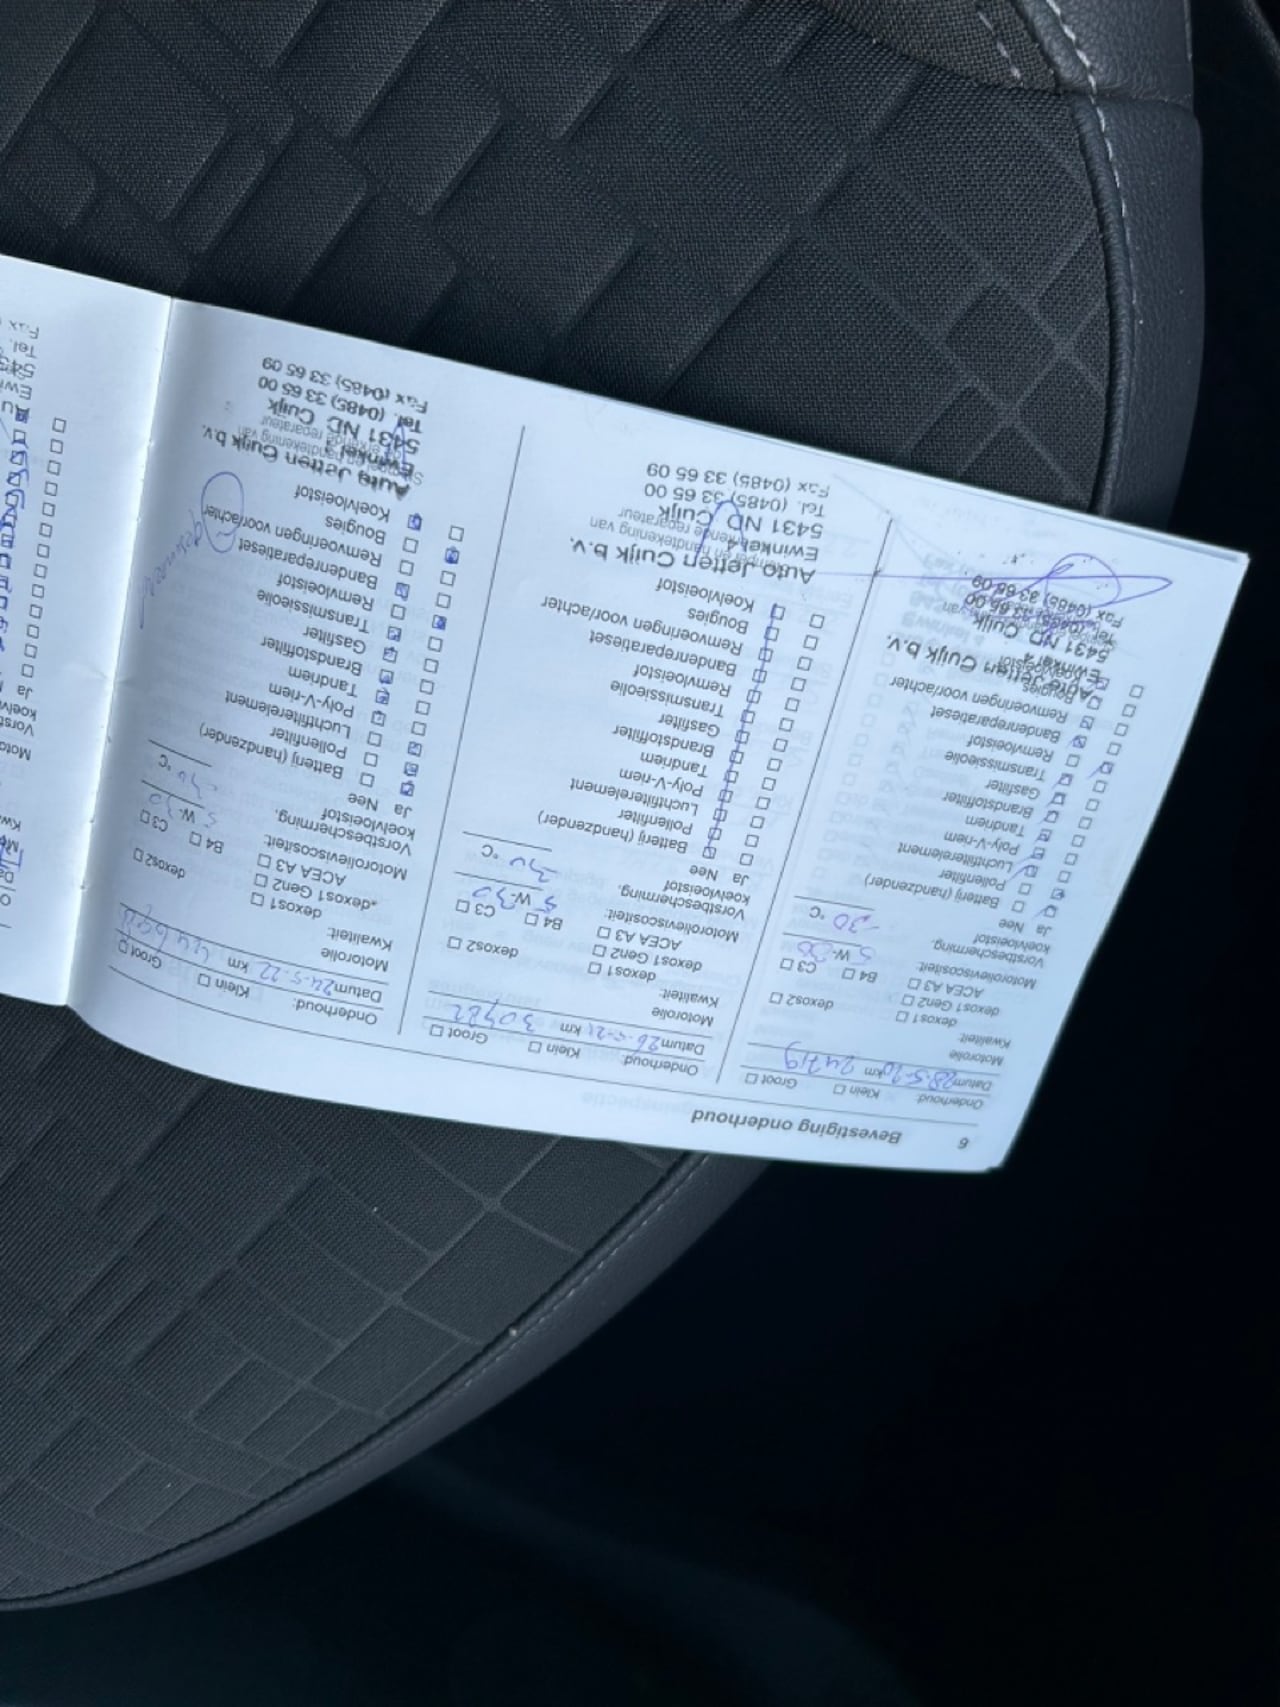 6 Bevestiging onderhoud
Onderhoud: Klein Groot
Datum 28-5-20 km 24719
Motorolie
Kwaliteit:
dexos1
dexos1 Gen2 dexos2
ACEA A3 B4 C3
Motorolieviscositeit: 5 W-30
Vorstbescherming.
koelvloeistof -30 °C
Ja Nee
Batterij (handzender)
Pollenfilter
Luchtfilterelement
Poly-V-riem
Tandriem
Brandstoffilter
Gasfilter
Transmissieolie
Remvloeistof
Bandenreparatieset
Remvoeringen voor/achter
Bougies
Koelvloeistof
Auto Jetten Cuijk b.v.
Ewinkel 4
5431 ND Cuijk
Tel. (0485) 33 65 00
Fax (0485) 33 65 09
Onderhoud: Klein Groot
Datum km 30782
Motorolie
Kwaliteit:
dexos1
dexos1 Gen2 dexos2
ACEA A3 B4 C3
Motorolieviscositeit: 5 W-30
Vorstbescherming.
koelvloeistof -30 °C
Ja Nee
Batterij (handzender)
Pollenfilter
Luchtfilterelement
Poly-V-riem
Tandriem
Brandstoffilter
Gasfilter
Transmissieolie
Remvloeistof
Bandenreparatieset
Remvoeringen voor/achter
Bougies
Koelvloeistof
Stempel en handtekening van
erkende reparateur
Auto Jetten Cuijk b.v.
Ewinkel 4
5431 ND Cuijk
Tel. (0485) 33 65 00
Fax (0485) 33 65 09
Onderhoud: Klein Groot
Datum 24-5-22 km
Motorolie
Kwaliteit:
dexos1
dexos1 Gen2 dexos2
ACEA A3 B4 C3
Motorolieviscositeit: 5 W-30
Vorstbescherming.
koelvloeistof -30 °C
Ja Nee
Batterij (handzender)
Pollenfilter
Luchtfilterelement
Poly-V-riem
Tandriem
Brandstoffilter
Gasfilter
Transmissieolie
Remvloeistof
Bandenreparatieset
Remvoeringen voor/achter
Bougies
Koelvloeistof
Stempel en handtekening van
erkende reparateur
Auto Jetten Cuijk b.v.
Ewinkel 4
5431 ND Cuijk
Tel. (0485) 33 65 00
Fax (0485) 33 65 09
Ja
Tel.
Fax